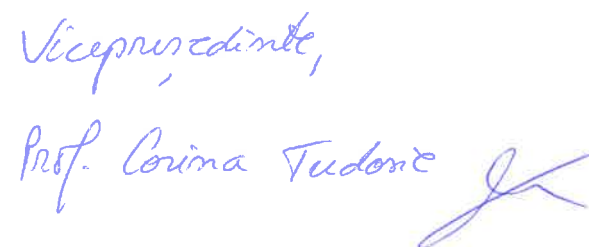 Vicepreședinte,
Prof. Corina Tudorie